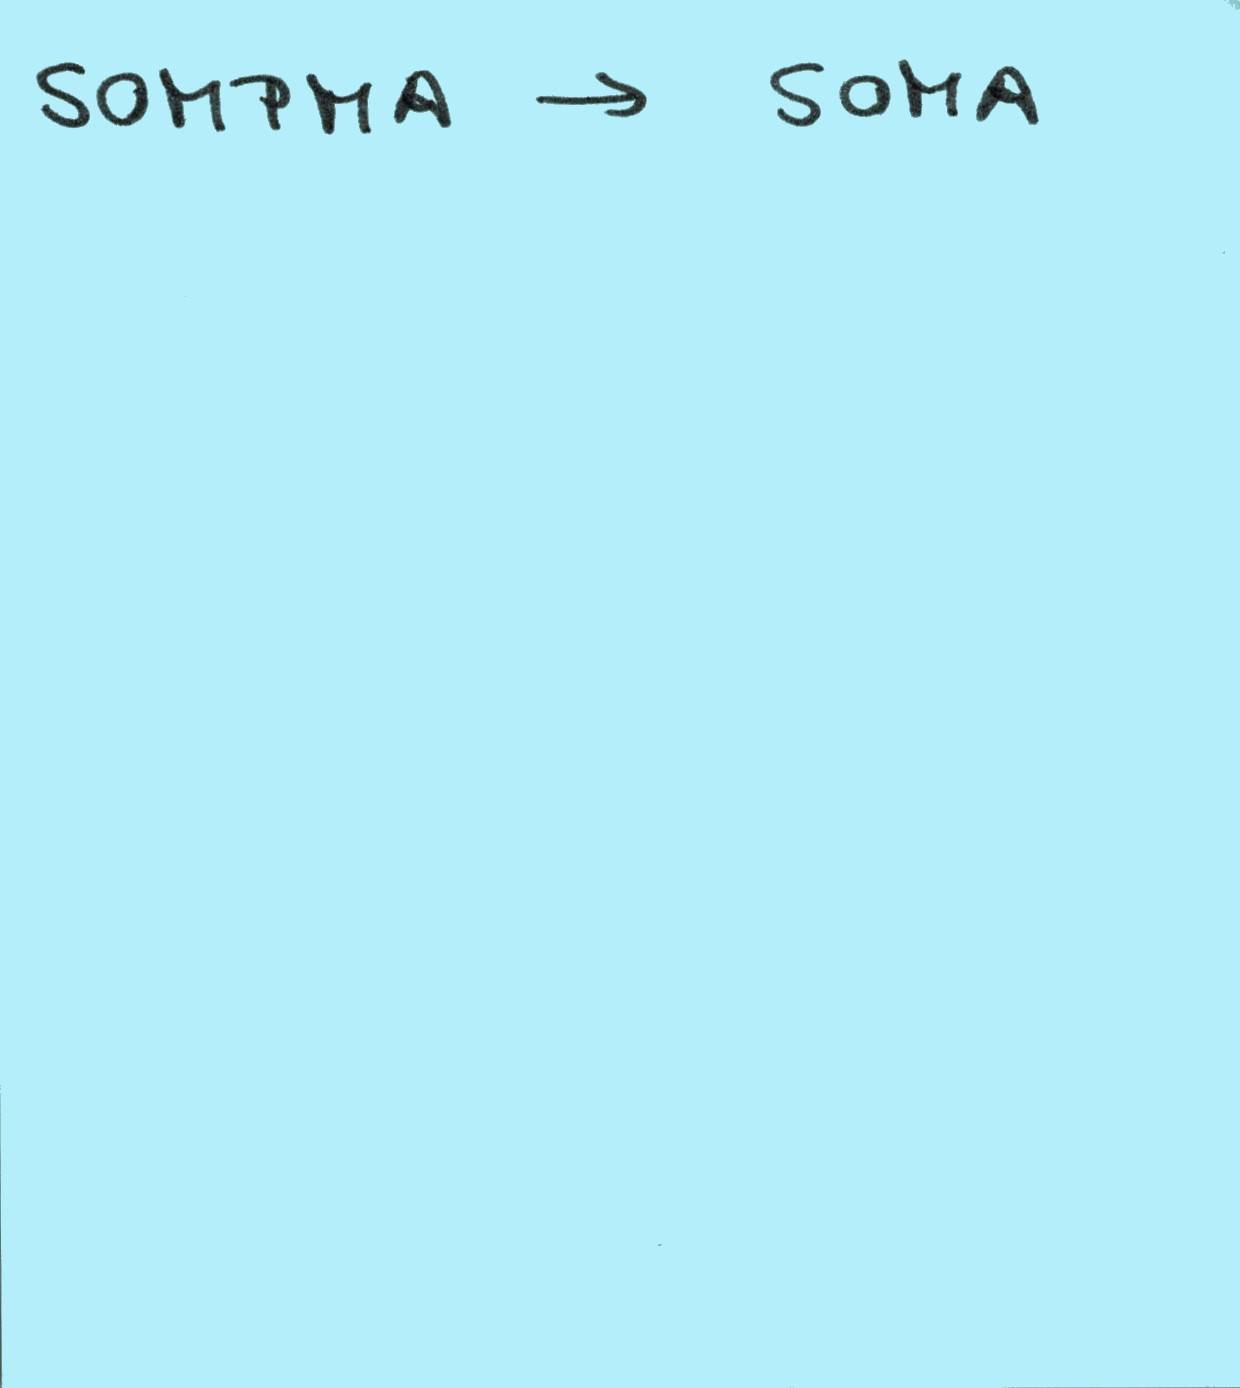 SOMPMA → SOMA